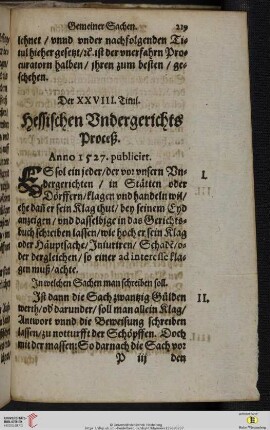 Gemeiner Sachen. 219
lehnet / vnnd vnder nachfolgenden Ti-
tul hieher gesetzt / ꝛc. ist der vnerfahrn Pro-
curatorn halben / jhren zum besten / ge-
schehen.
Der XXVIII. Titul.
Hessischen Vndergerichts
Proceß.
Anno 1527. publicirt.
ES sol ein jeder / der vor vnsern Vn- I.
dergerichten / in Stätten oder
Dörffern / klagen vnd handeln wil /
ehe dañ er sein Klag thut / bey seinem Eyd
anzeigen / vnd dasselbige in das Gerichts-
buch schreiben lassen / wie hoch er sein Klag
oder Häuptsache / Iniurien / Schadẽ / o-
der dergleichen / so einer ad interesse kla-
gen muß / achte.
In welchen Sachen man schreiben soll.
Ist dann die Sach zwantzig Gülden II.
werth / oď darunder / soll man allein Klag /
Antwort vnnd die Beweisung schreiben
lassen / zu notturfft der Schöpffen. Doch
mit der massen: So darnach die Sach vor
P iij den